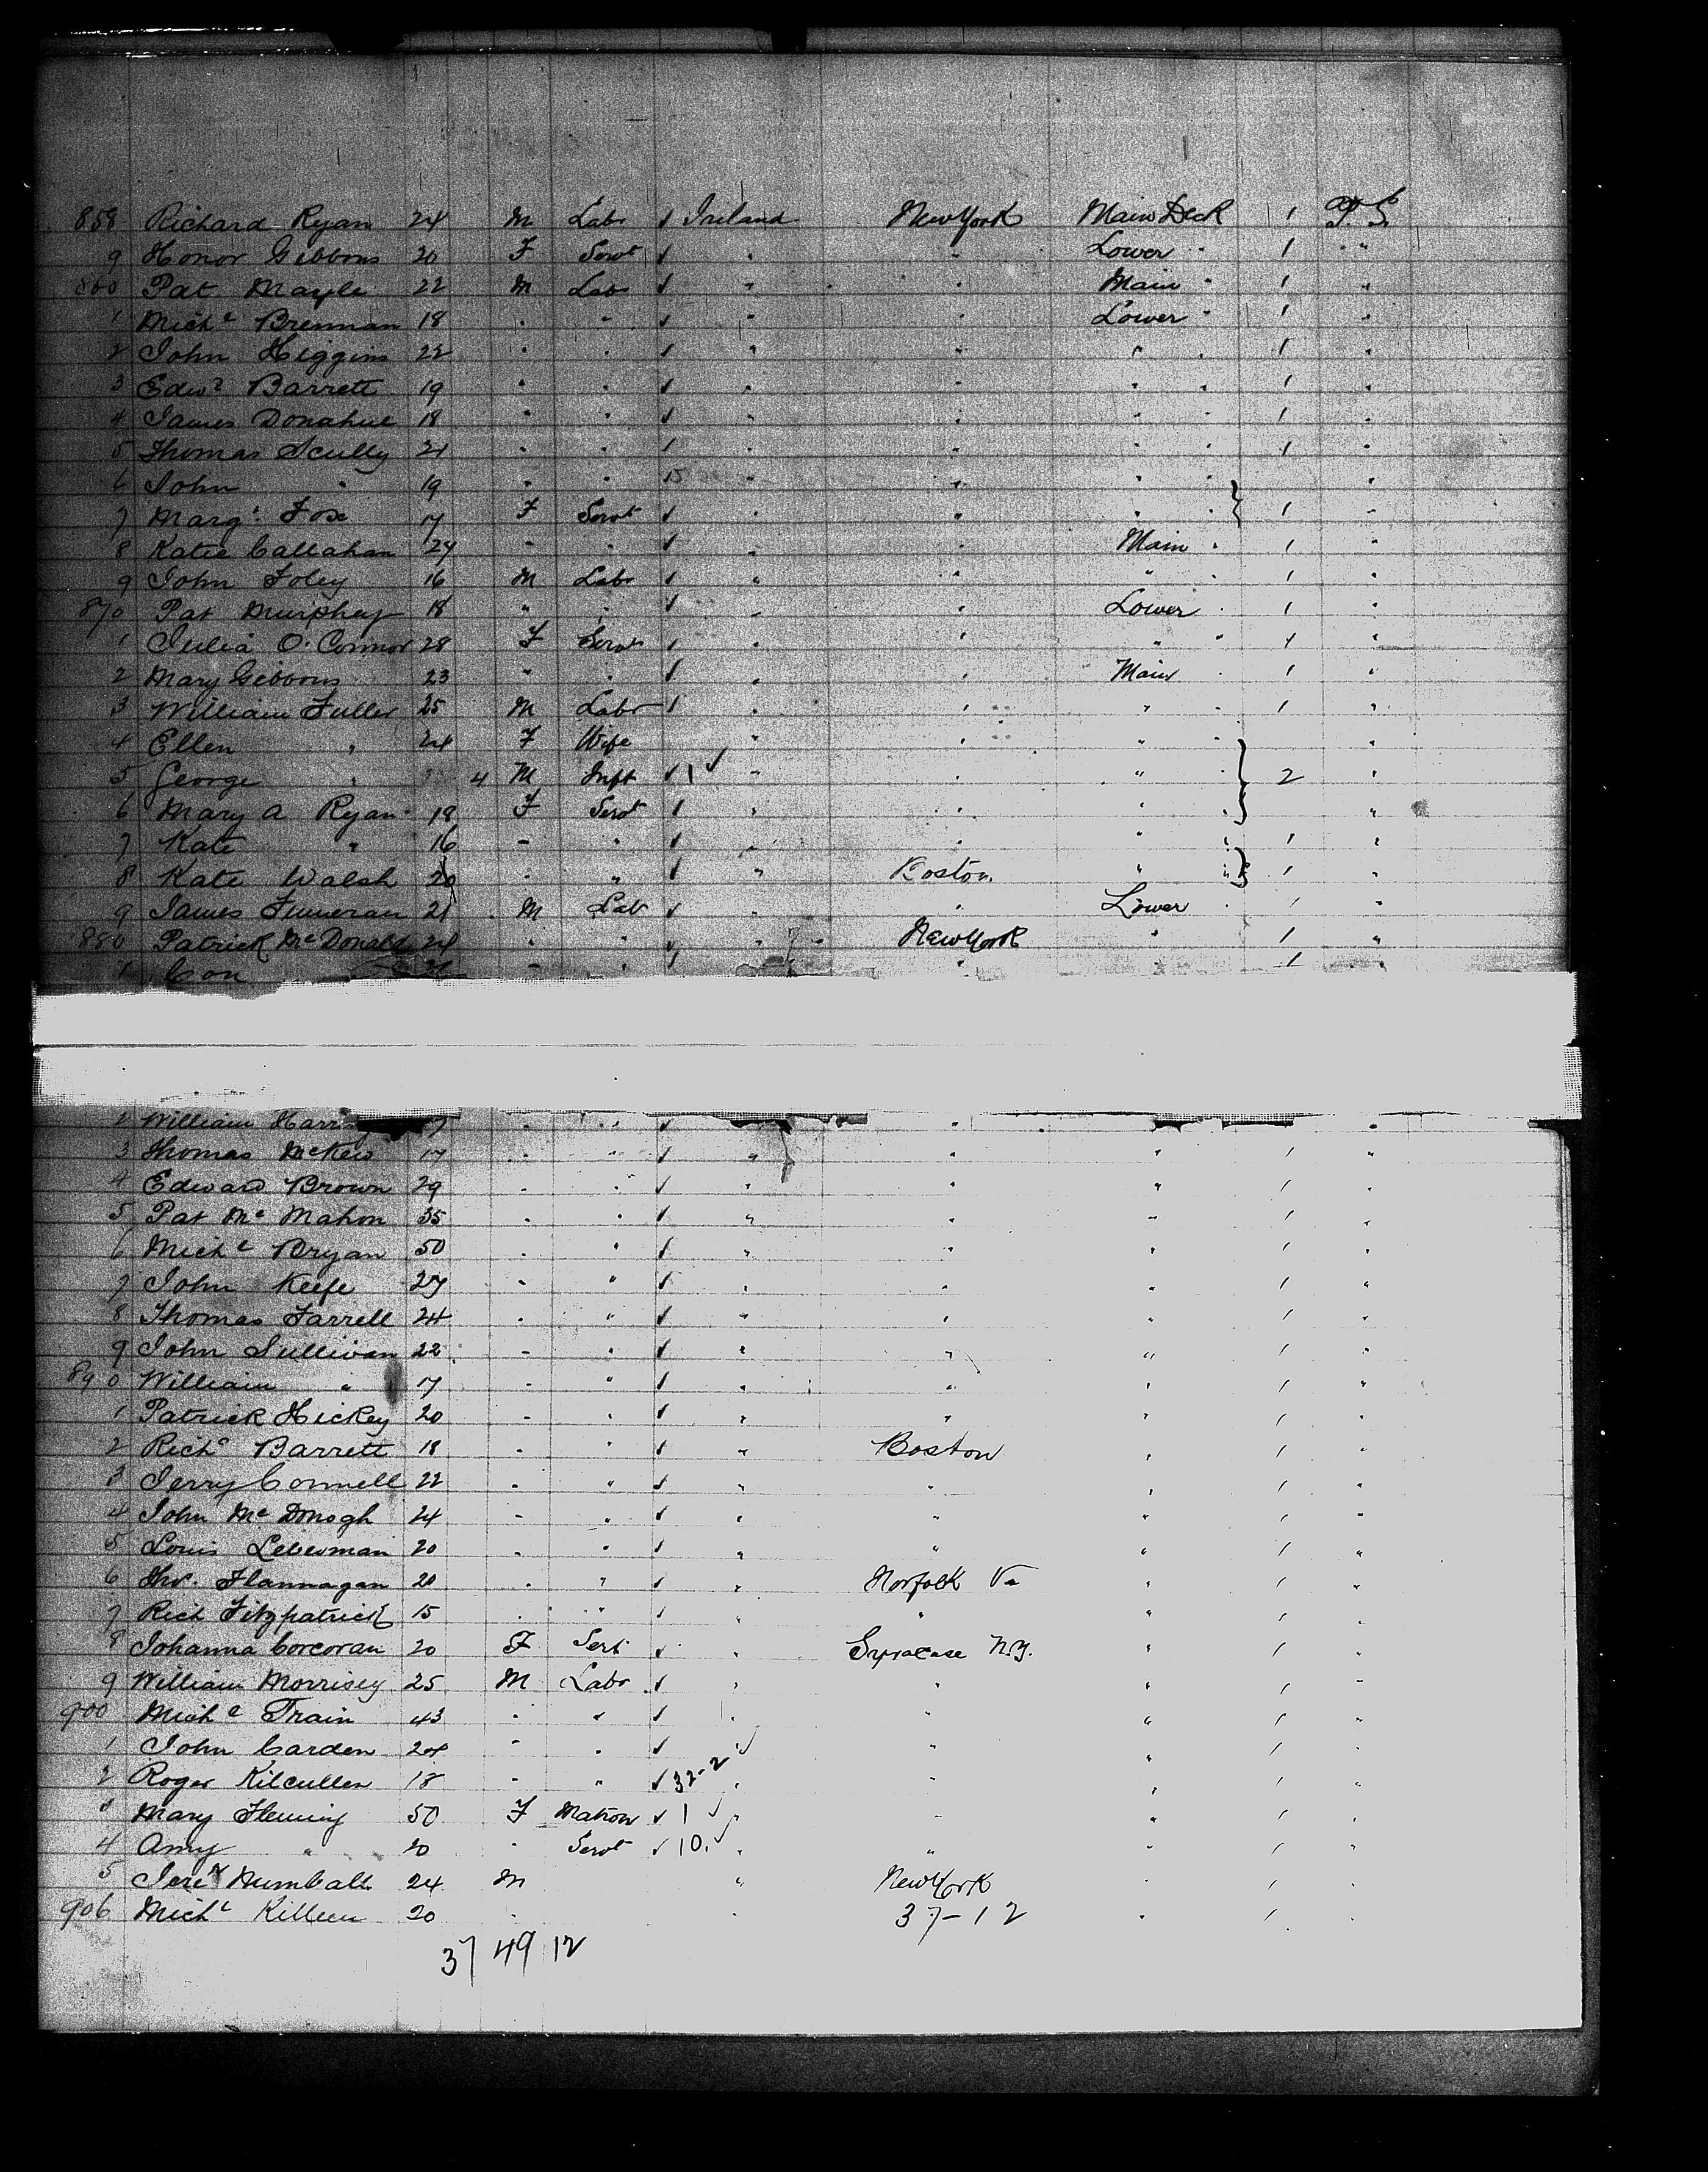 858 Richard Ryan 24 M Labr Ireland New York Main Deck 1
9 Honor Gibbons 20 F Servt " " Lower " 1 "
860 Pat Mayle 22 M Labr " " Main " 1 "
1 Michl Brennan 18 " " " " Lower " 1 "
2 John Higgins 22 " " " " " " 1 "
3 Edwd Barrett 19 " " " " " " 1 "
4 James Donahue 18 " " " " " " 1 "
5 Thomas Scully 21 " " " " " " 1 "
6 John " 19 " " 15 " " " " "
7 Margt Fox 17 F Servt " " " " 1 "
8 Katie Callahan 24 " " " " Main " 1 "
9 John Foley 16 M Labr " " " " 1 "
870 Pat Murphey 18 " " " " Lower " 1 "
1 Julia O'Connor 28 F Servt " " " " 1 "
2 Mary Gibbons 23 " " " " Main " 1 "
3 William Fuller 25 M Labr " " " " 1 "
4 Ellen " 24 F Wife " " " " "
5 George " 4 M Inft 1 " " " " 2 "
6 Mary A Ryan 18 F Servt " " " " "
7 Kate " 16 " " " " " " 1 "
8 Kate Walsh 20 " " " Boston " " 1 "
9 James Finneran 21 M Lab " " Lower " 1 "
880 Patrick McDonald 24 " " " New York " 1 "
1 Con " " " " 1 "
2 William " " " " "
3 Thomas McKew 17 " " " " " 1 "
4 Edward Brown 29 " " " " " 1 "
5 Pat McMahon 35 " " " " " 1 "
6 Michl Bryan 50 " " " " " 1 "
7 John Keefe 27 " " " " " 1 "
8 Thomas Farrell 24 " " " " " 1 "
9 John Sullivan 22 " " " " " 1 "
890 William " 17 " " " " " 1 "
1 Patrick Hickey 20 " " " " " 1 "
2 Richd Barrett 18 " " " Boston " 1 "
3 Jerry Connell 22 " " " " " 1 "
4 John McDonogh 24 " " " " " 1 "
5 Louis Leberman 20 " " " " " 1 "
6 Flannagan 20 " " " Norfolk Va " 1 "
7 Rich Fitzpatrick 15 " " " " " 1 "
8 Johanna Corcoran 20 F Sert " Syracase N.Y. " 1 "
9 William Morrisey 25 M Labr " " " 1 "
900 Michl Train 43 " " " " " 1 "
1 John Carden 24 " " " " " 1 "
2 Roger Kilcullen 18 " " 32-2 " " " 1 "
3 Mary Fleming 50 F Matron 1 " " " 1 "
4 Amy " 20 " Servt 10. " " " 1 "
5 24 M " New York " 1 "
906 Michl Killeen 20 " " 37-12 " 1 "
37 49 12